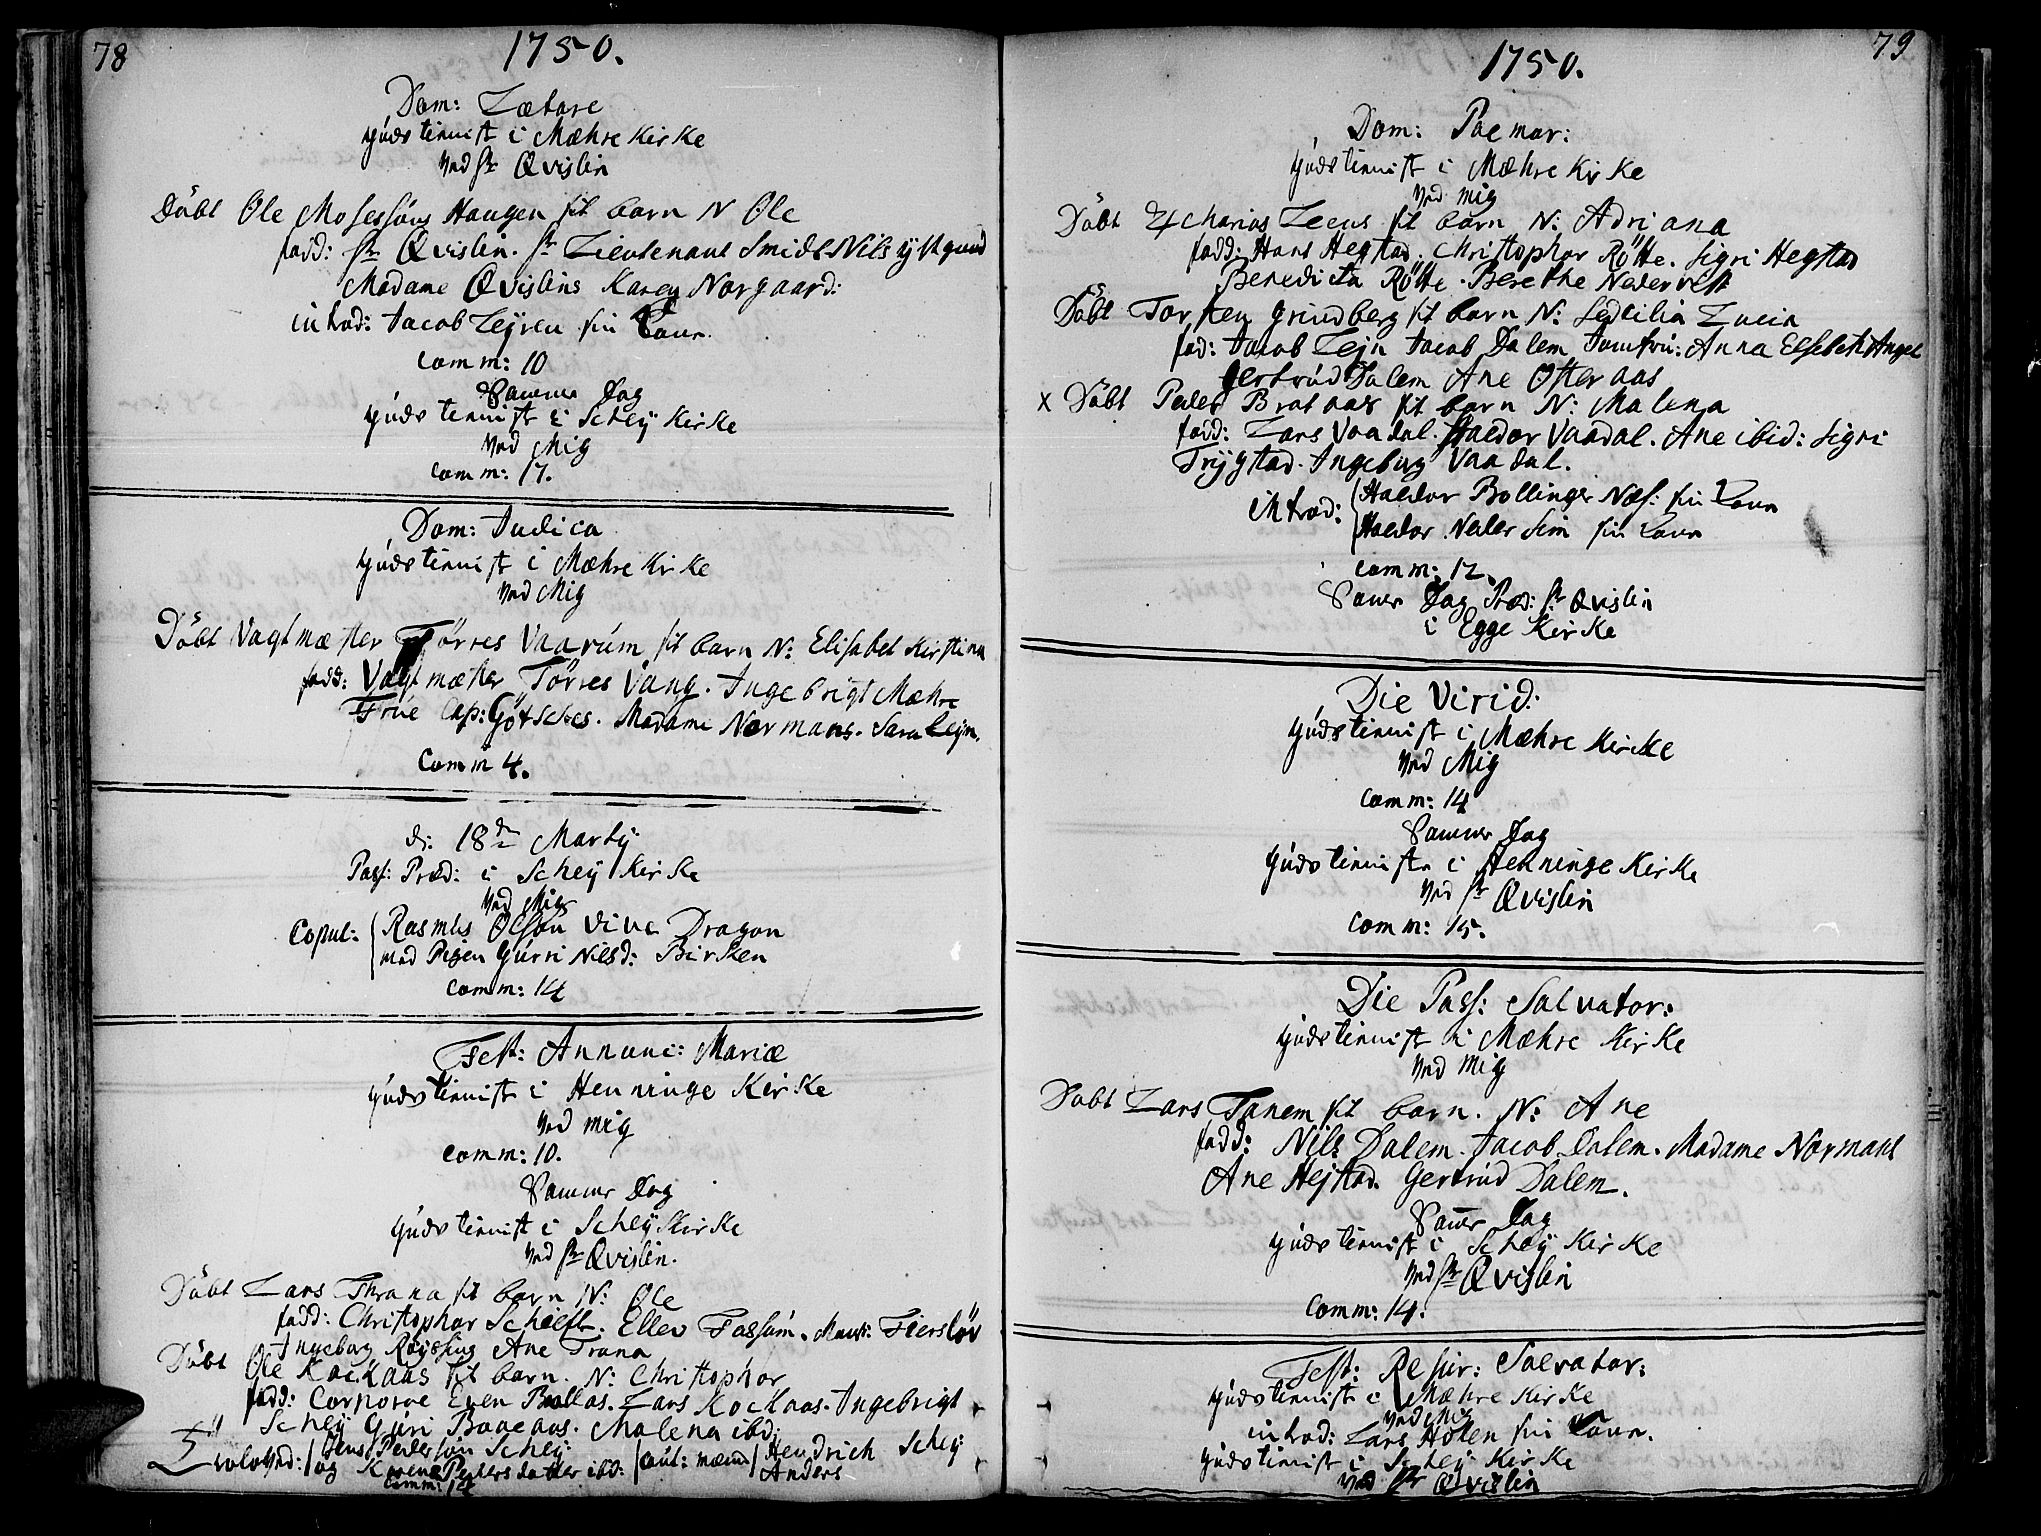 78
1750.
Dom: Lætare
Gúds tienist i Mæhre Kirke
Ved Hr Qvislin
Döbt Ole Mosessöns Haugen sit barn N Ole
fadd: Hr Qvislin. Hr Lieutenant Smidt Nils
Madame Qvislins Karen Norgaard:
introd: Jacob Leyren sin Kone.
Comm: 10
Samme Dag
Gúds tienist i Schey Kirke
Ved Mig
Comm: 17.
Dom: Judica
Gúds tienist i Mæhre Kirke
Ved Mig
Döbt Vagtmæster Törres Vaarúm sit barn N: Elisabet Kirstina
fadd: Vagtmæster Törres Vang. Ingebrigt Mæhre
Frúe Cap: Götsches. Madame Normans. Sara Leyn.
Comm 4.
d: 18de Martij
Pass: Præd: i Schey Kirke
Ved Mig
Copul: Rasmús Olsön Dragon
med Pigen Gúrri Nilsd: Birken
Comm: 14
Fest: Annunc: Mariæ
Gúds tienist i Henninge Kirke
Ved mig
Comm: 10.
Samme Dag
Gúds tienist i Schey Kirke
Ved Hr Qvislin.
Döbt Lars Thrana sit barn N: Ole
fadd: Christopher Schieft. Ellev Fossúm. Mons: Fierslöv
Ingeborg Ane Trana
Döbt Ole Kockaas sit barn. N: Christophor
fadd: Corporve Even Bollas. Lars Kockaas. Ingebrigt
Schey Gúri Baaeaas. Malena ibd:
Jens Pedersön Schey
og Karen Pedersdatter ibd: Caút: mænd Hendrich Schey
Anders
Comm: 14
79
1750.
Dom: Palmar:
Gúds tienist i Mæhre Kirke
Ved mig
Döbt Zacharias Leens sit barn N: Adriana
fadd: Hans Hegstad. Christophor Rötte. Sigri Hegstad
Benedicta Rötte. Berethe Nedervest
Döbt Torsten Grindberg sit barn N: Sedcilia Lucia
fad: Jacob Lejn Jacob Dalem Jomfrú: Anna Elsebeth Angel
Gertrúd Dalem Ane Osteraas
x Döbt Peder Brataas sit barn N: Malena
fadd: Lars Vaadal. Haldor Vaadal. Ane ibid: Sigri
Trygstad. Ingeborg Vaadal.
introd: Haldor Bollinger Næs: sin Kone
Haldor Neder Sem sin Kone
Comm: 12.
Samme Dag Præd: Hr Qvislin
i Egge Kirke
Die Virid:
Gúds tienist i Mæhre Kircke
Ved Mig
Comm: 14
Samme Dag
Gúds tieniste i Henninge Kirke
Ved Hr Qvislin
Comm: 15.
Die Pass: Salvator:
Gúds tienist i Mæhre Kirke
Ved Mig
Döbt Lars Tanem sit barn. N: Ane
fadd: Nils Dalem. Jacob Dalem. Madame Normans
Ane Hejstad. Gertrúd Dalem.
Samme Dag
Gúds tienist i Schey Kirke
Ved Hr Qvislin
Comm: 14.
Fest: Resúr: Salvator:
Gúds tienist i Mæhre Kirke
Ved Mig
introd: Lars Holen sin Kone.
Gúds tienist i Schey Kirke
Ved Hr Qvislin